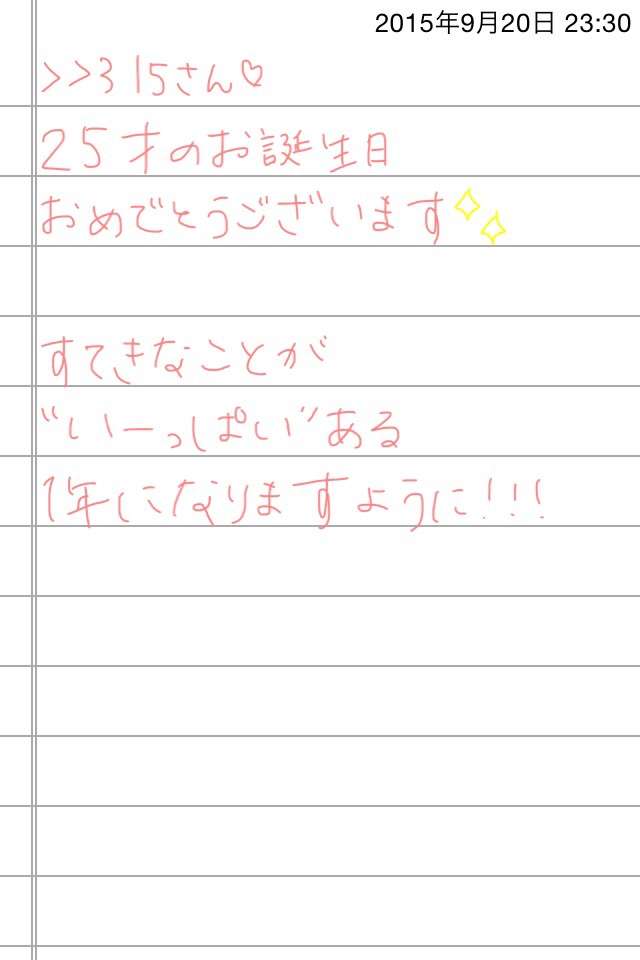 2015年9月20日 23:30
>>315さん♡
25才のお誕生日
おめでとうございます✧✧
すてきなことが
“いーっぱい”ある
1年になりますように!!!